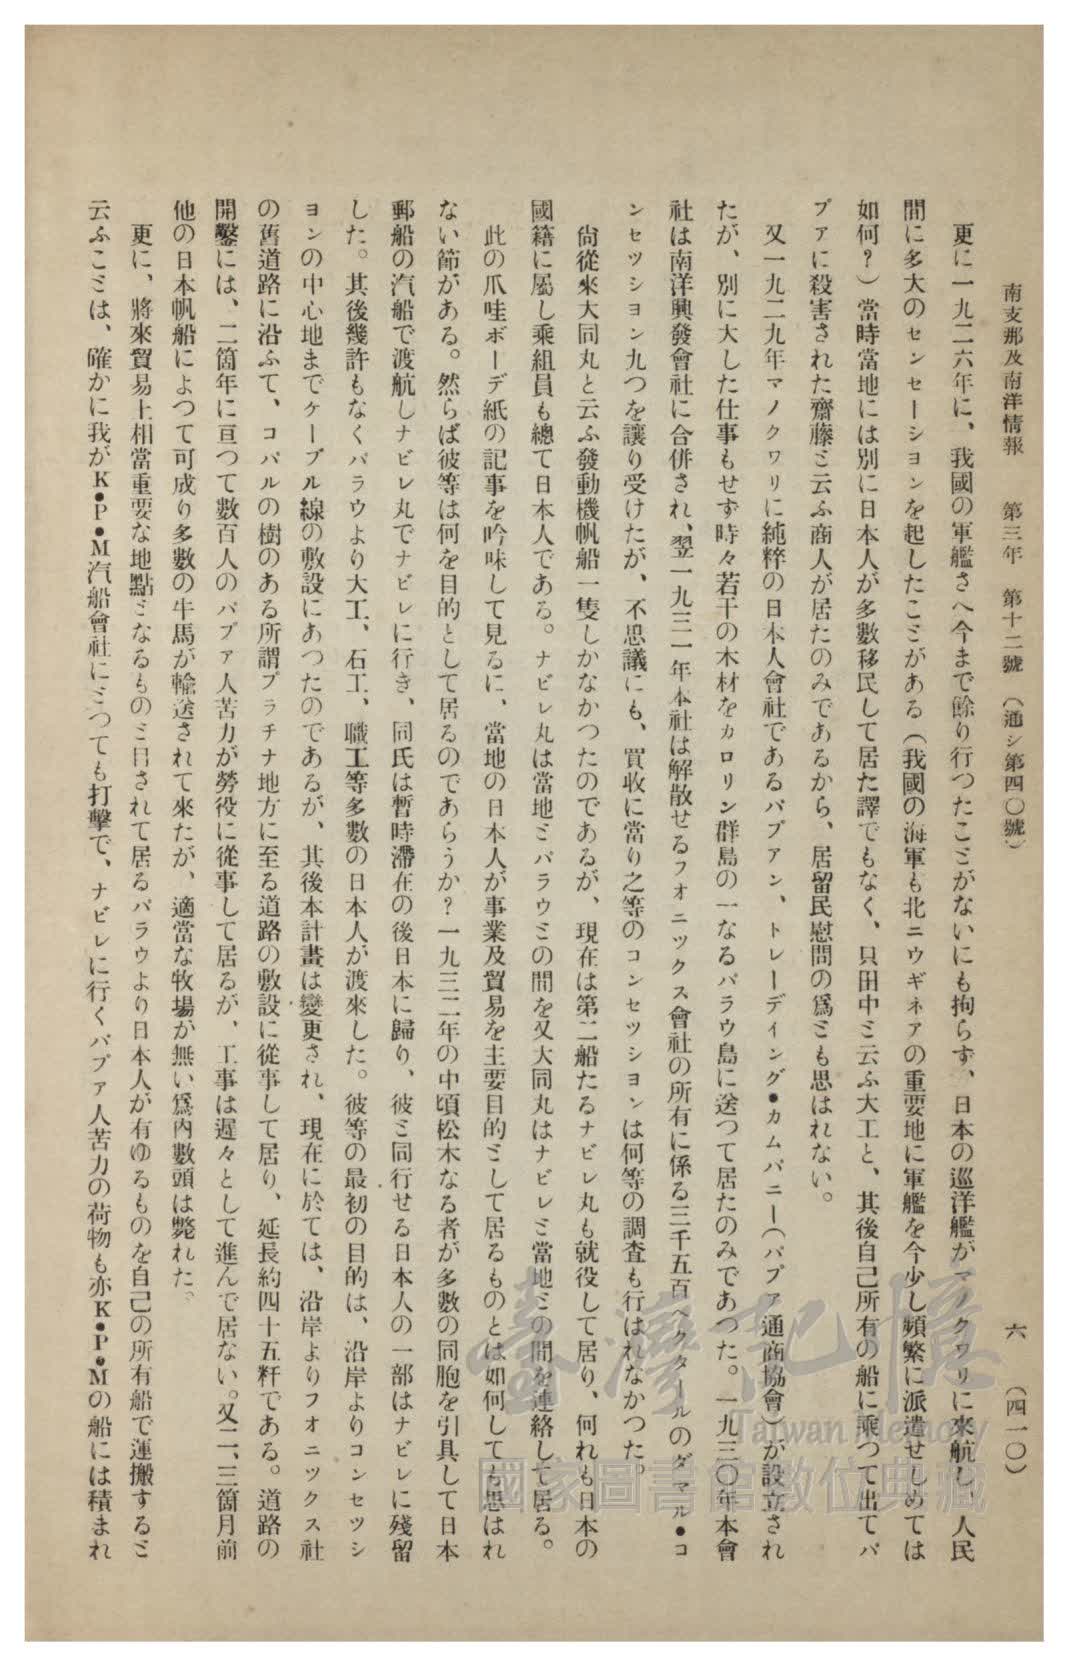 南支那及南洋情報　第三年　第十二號　（通シ第四〇號）　六　（四一〇）
更に一九二六年に、我國の軍艦さへ今まで餘り行つたこミがないにも拘らず、日本の巡洋艦がマノクワリに來航し、人民
間に多大のセンセーシヨンを起したこミがある（我國の海軍も北ニウギネアの重要地に軍艦を今少し頻繁に派遣せしめては
如何？）當時當地には別に日本人が多數移民して居た譯でもなく、只田中ミ云ふ大工と、其後自己所有の船に乘つて出てパ
プアに殺害された齋藤ミ云ふ商人が居たのみであるから、居留民慰問の爲ミも思はれない。
又一九二九年マノクワリに純粹の日本人會社であるパプアン、トレーデイング・カムパニー（パプア通商協會）が設立され
たが、別に大した仕事もせず時々若干の木材をカロリン群島の一なるパラウ島に送つて居たのみであつた。一九三〇年本會
社は南洋興發會社に合併され、翌一九三一年本社は解散せるフオニツクス會社の所有に係る三千五百ヘクタールのダマル・コ
ンセツシヨン九つを讓り受けたが、不思議にも、買收に當り之等のコンセツシヨンは何等の調査も行はれなかつた。
尙從來大同丸と云ふ發動機帆船一隻しかなかつたのであるが、現在は第二船たるナビレ丸も就役して居り、何れも日本の
國籍に屬し乘組員も總て日本人である。ナビレ丸は當地ミパラウミの間を又大同丸はナビレミ當地ミの間を連絡して居る。
此の爪哇ボーデ紙の記事を吟味して見るに、當地の日本人が事業及貿易を主要目的ミして居るものとは如何しても思はれ
ない節がある。然らば彼等は何を目的として居るのであらうか？一九三二年の中頃松木なる者が多數の同胞を引具して日本
郵船の汽船で渡航しナビレ丸でナビレに行き、同氏は暫時滯在の後日本に歸り、彼ミ同行せる日本人の一部はナビレに殘留
した。其後幾許もなくパラウより大工、石工、職工等多數の日本人が渡來した。彼等の最初の目的は、沿岸よりコンセツシ
ヨンの中心地までケーブル線の敷設にあつたのであるが、其後本計畫は變更され、現在に於ては、沿岸よりフオニツクス社
の舊道路に沿ふて、コパルの樹のある所謂プラチナ地方に至る道路の敷設に從事して居り、延長約四十五粁である。道路の
開鑿には、二箇年に亘つて數百人のパプァ人苦力が勞役に從事して居るが、工事は遲々として進んで居ない。又二、三箇月前
他の日本帆船によつて可成り多數の牛馬が輸送されて來たが、適當な牧場が無い爲內數頭は斃れた。
更に、將來貿易上相當重要な地點ミなるものミ目されて居るパラウより日本人が有ゆるものを自己の所有船で運搬するミ
云ふこミは、確かに我がK・P・M汽船會社にミつても打擊で、ナビレに行くパプァ人苦力の荷物も亦K・P・Mの船には積まれ
臺灣記憶
Taiwan Memory
國家圖書館數位典藏